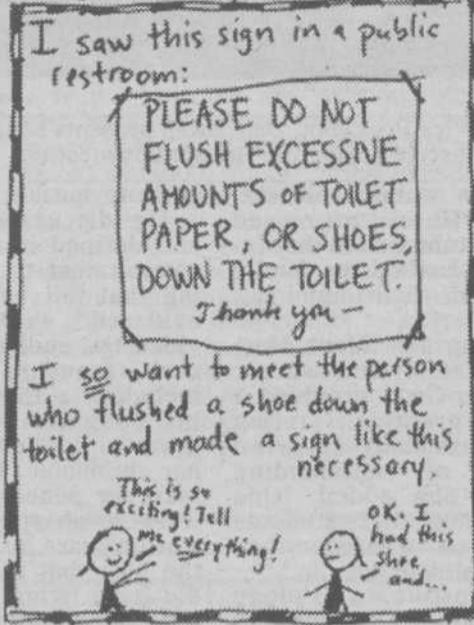 I saw this sign in a public
restroom:
PLEASE DO NOT
FLUSH EXCESSIVE
AMOUNTS OF TOILET
PAPER, OR SHOES,
DOWN THE TOILET.
Thank you —
I so want to meet the person
who flushed a shoe down the
toilet and made a sign like this
necessary.
This is so
exciting! Tell
me everything!
OK. I
had this
shoe
and...